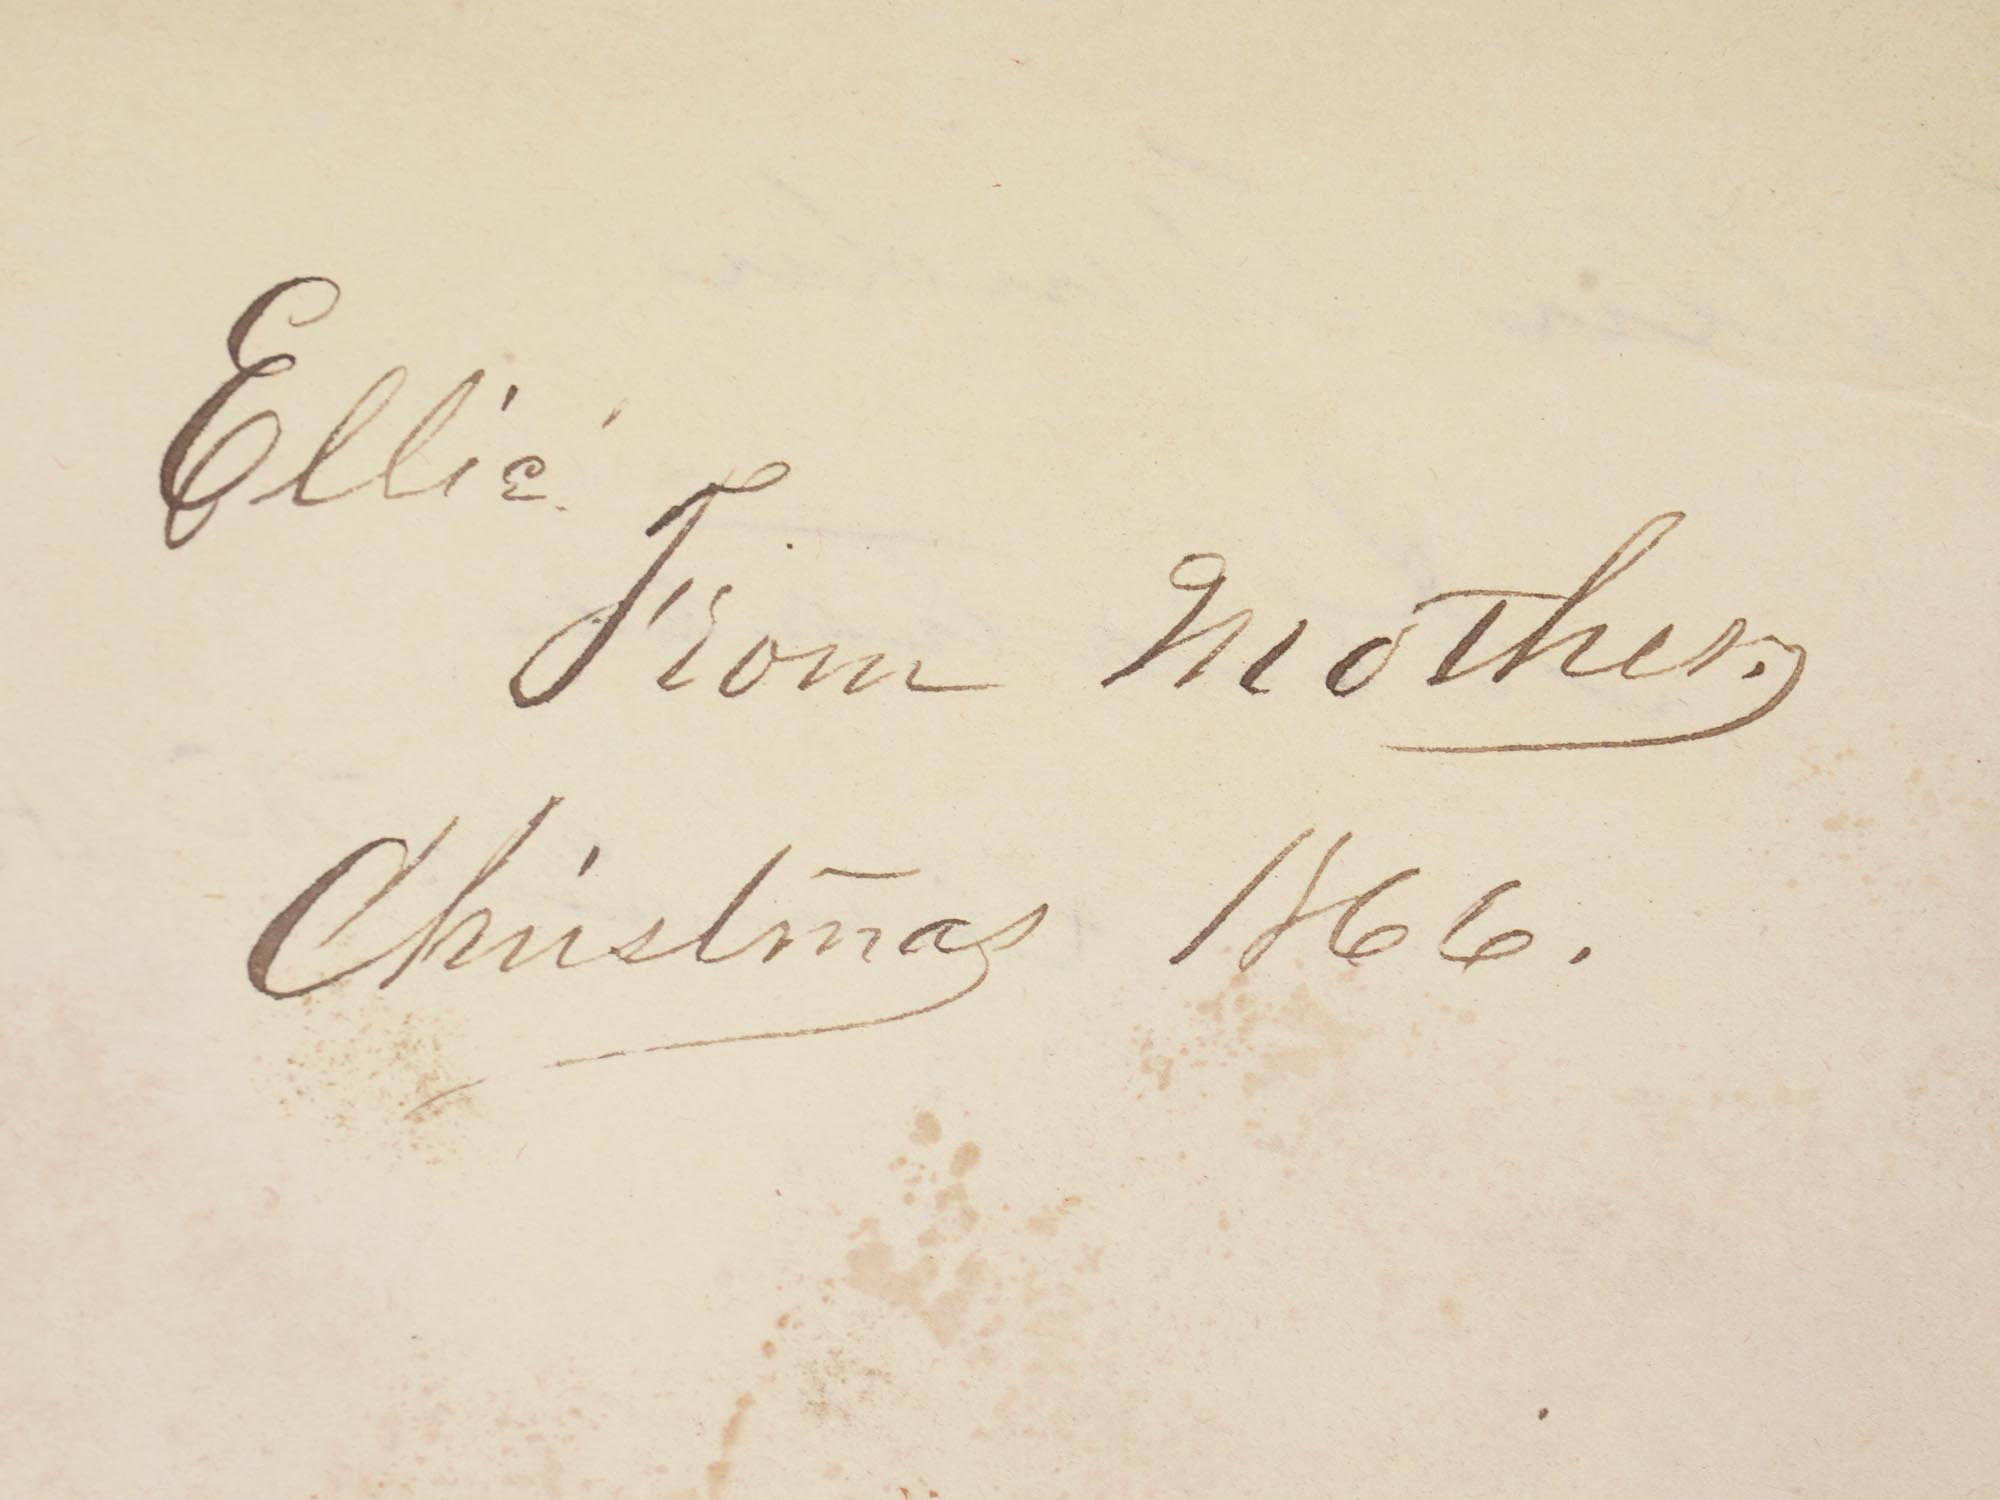 Ellie.
From Mother.
Christmas 1866.